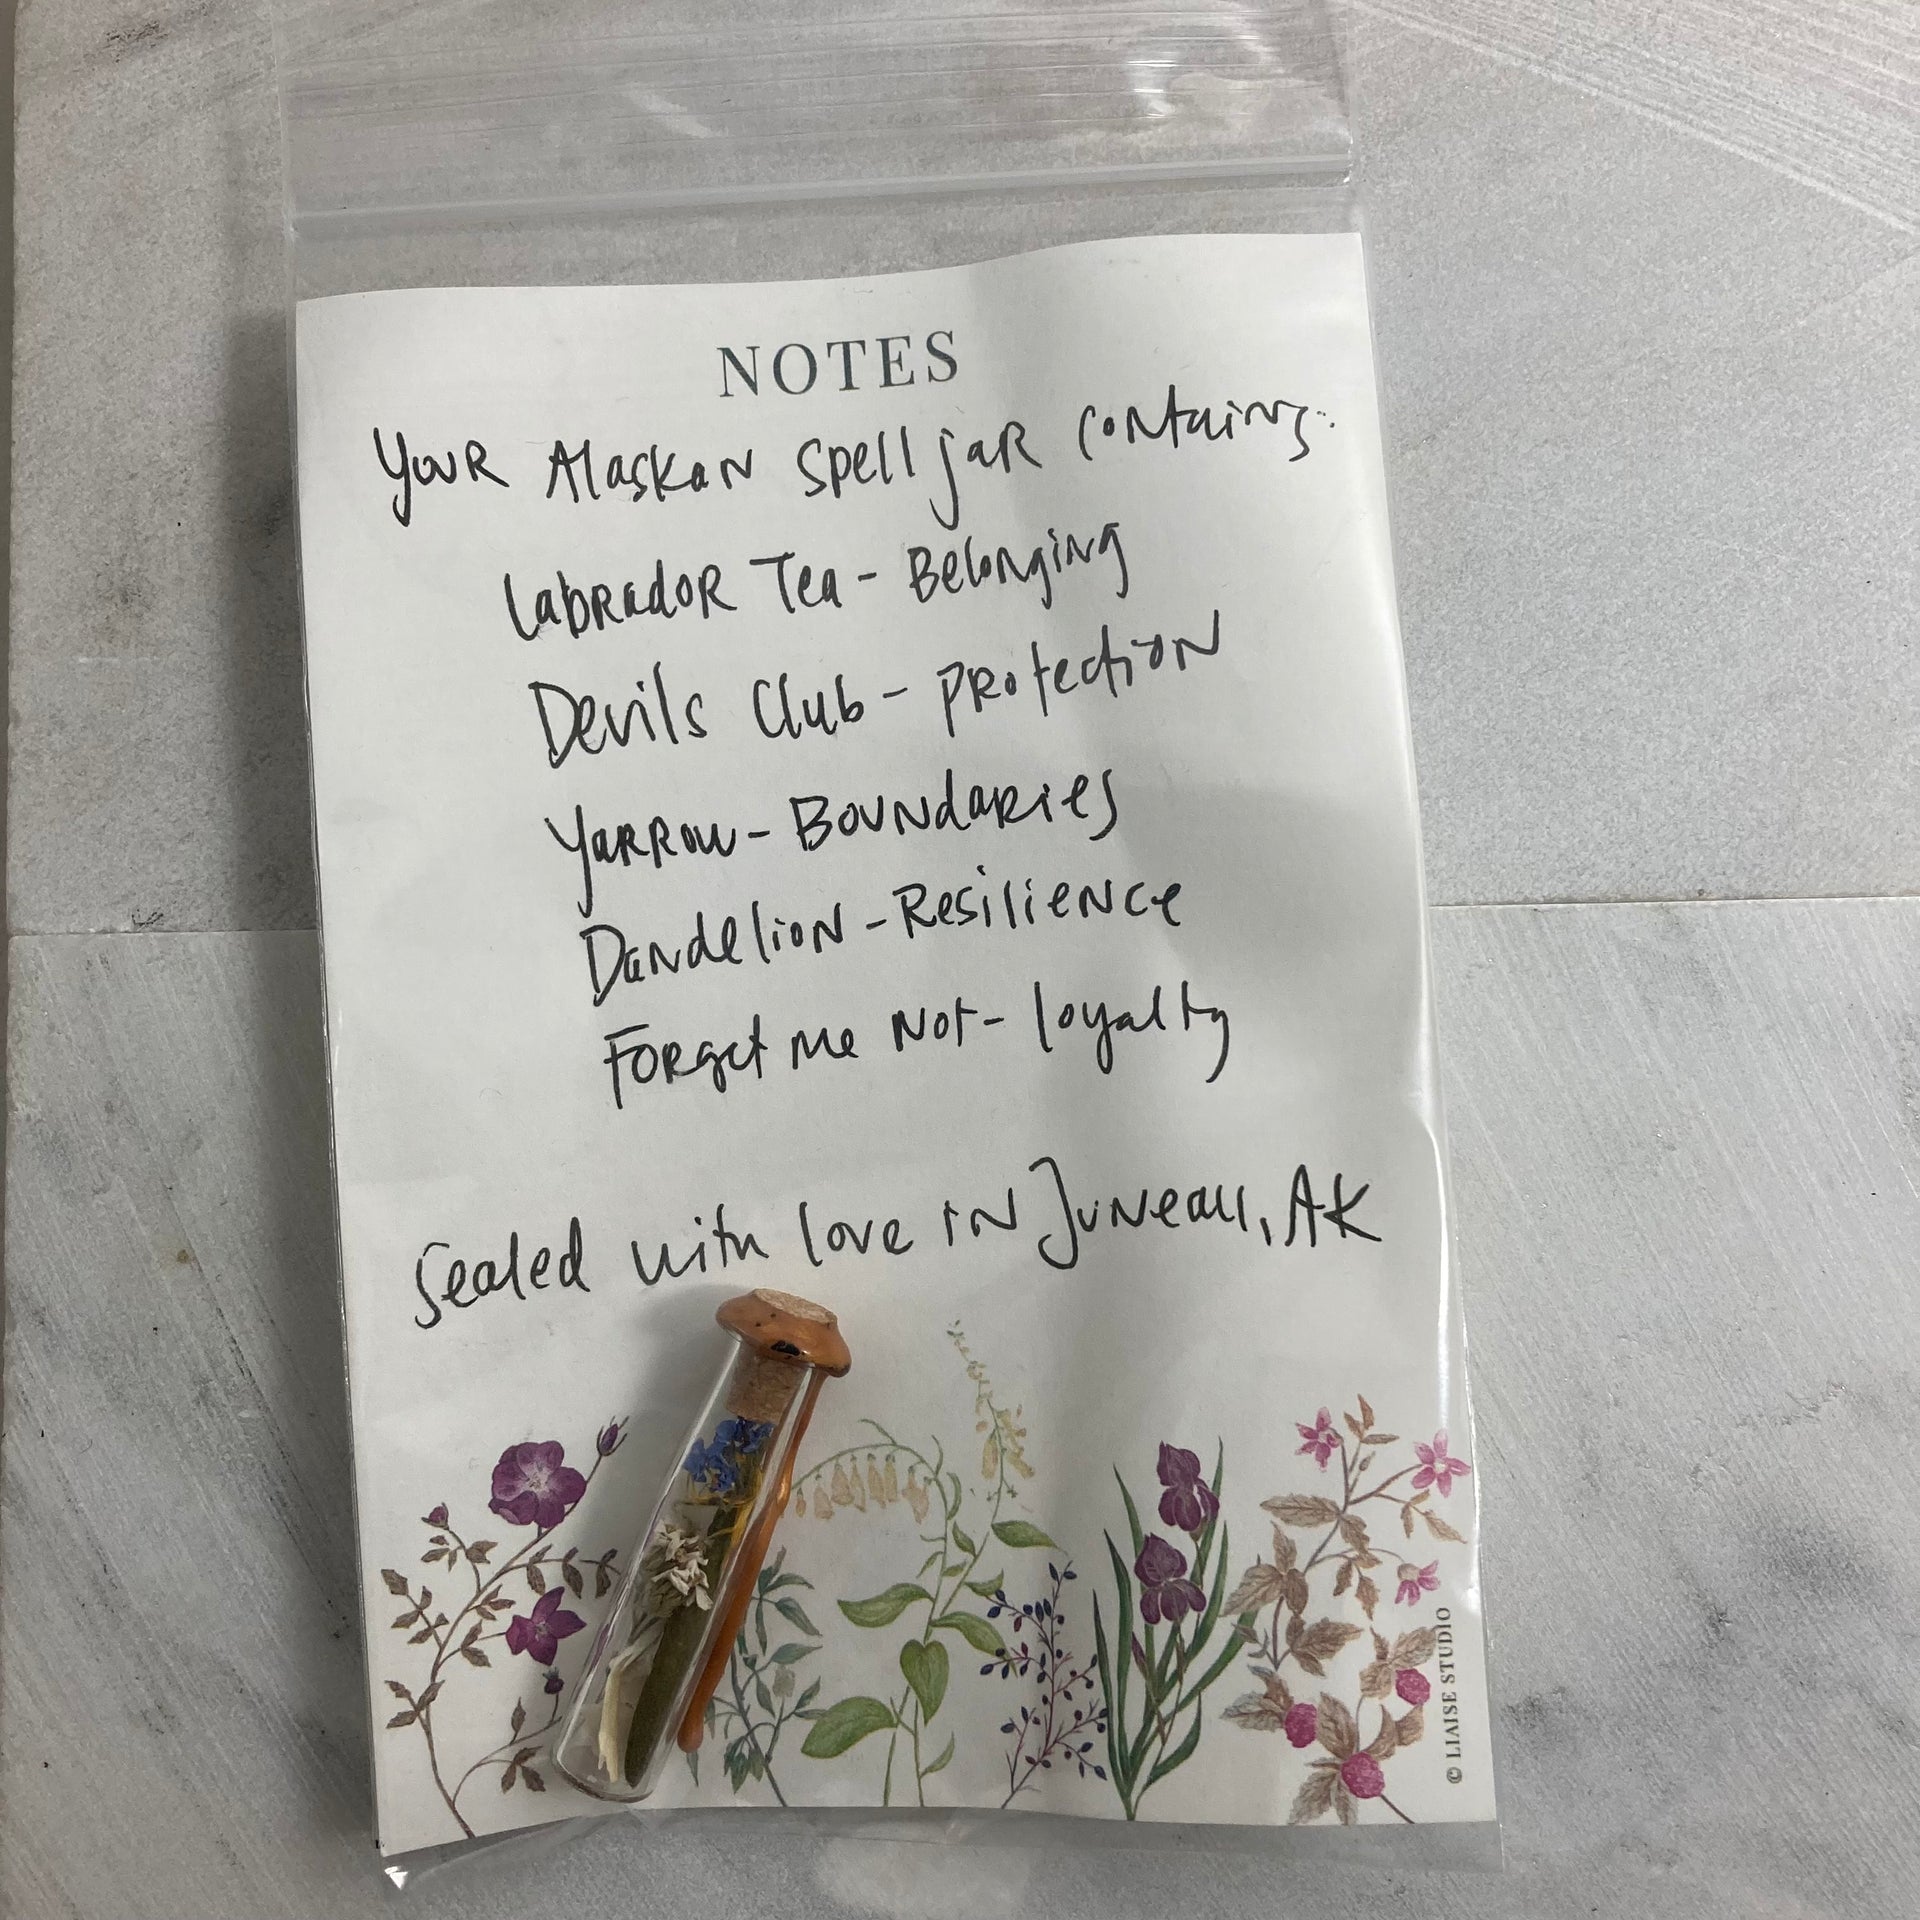 NOTES
Your Alaskan spell jar contains:
Labrador Tea - Belonging
Devils Club - Protection
Yarrow - Boundaries
Dandelion - Resilience
Forget me Not - loyalty
Sealed with love in Juneau, AK
© LIAISE STUDIO